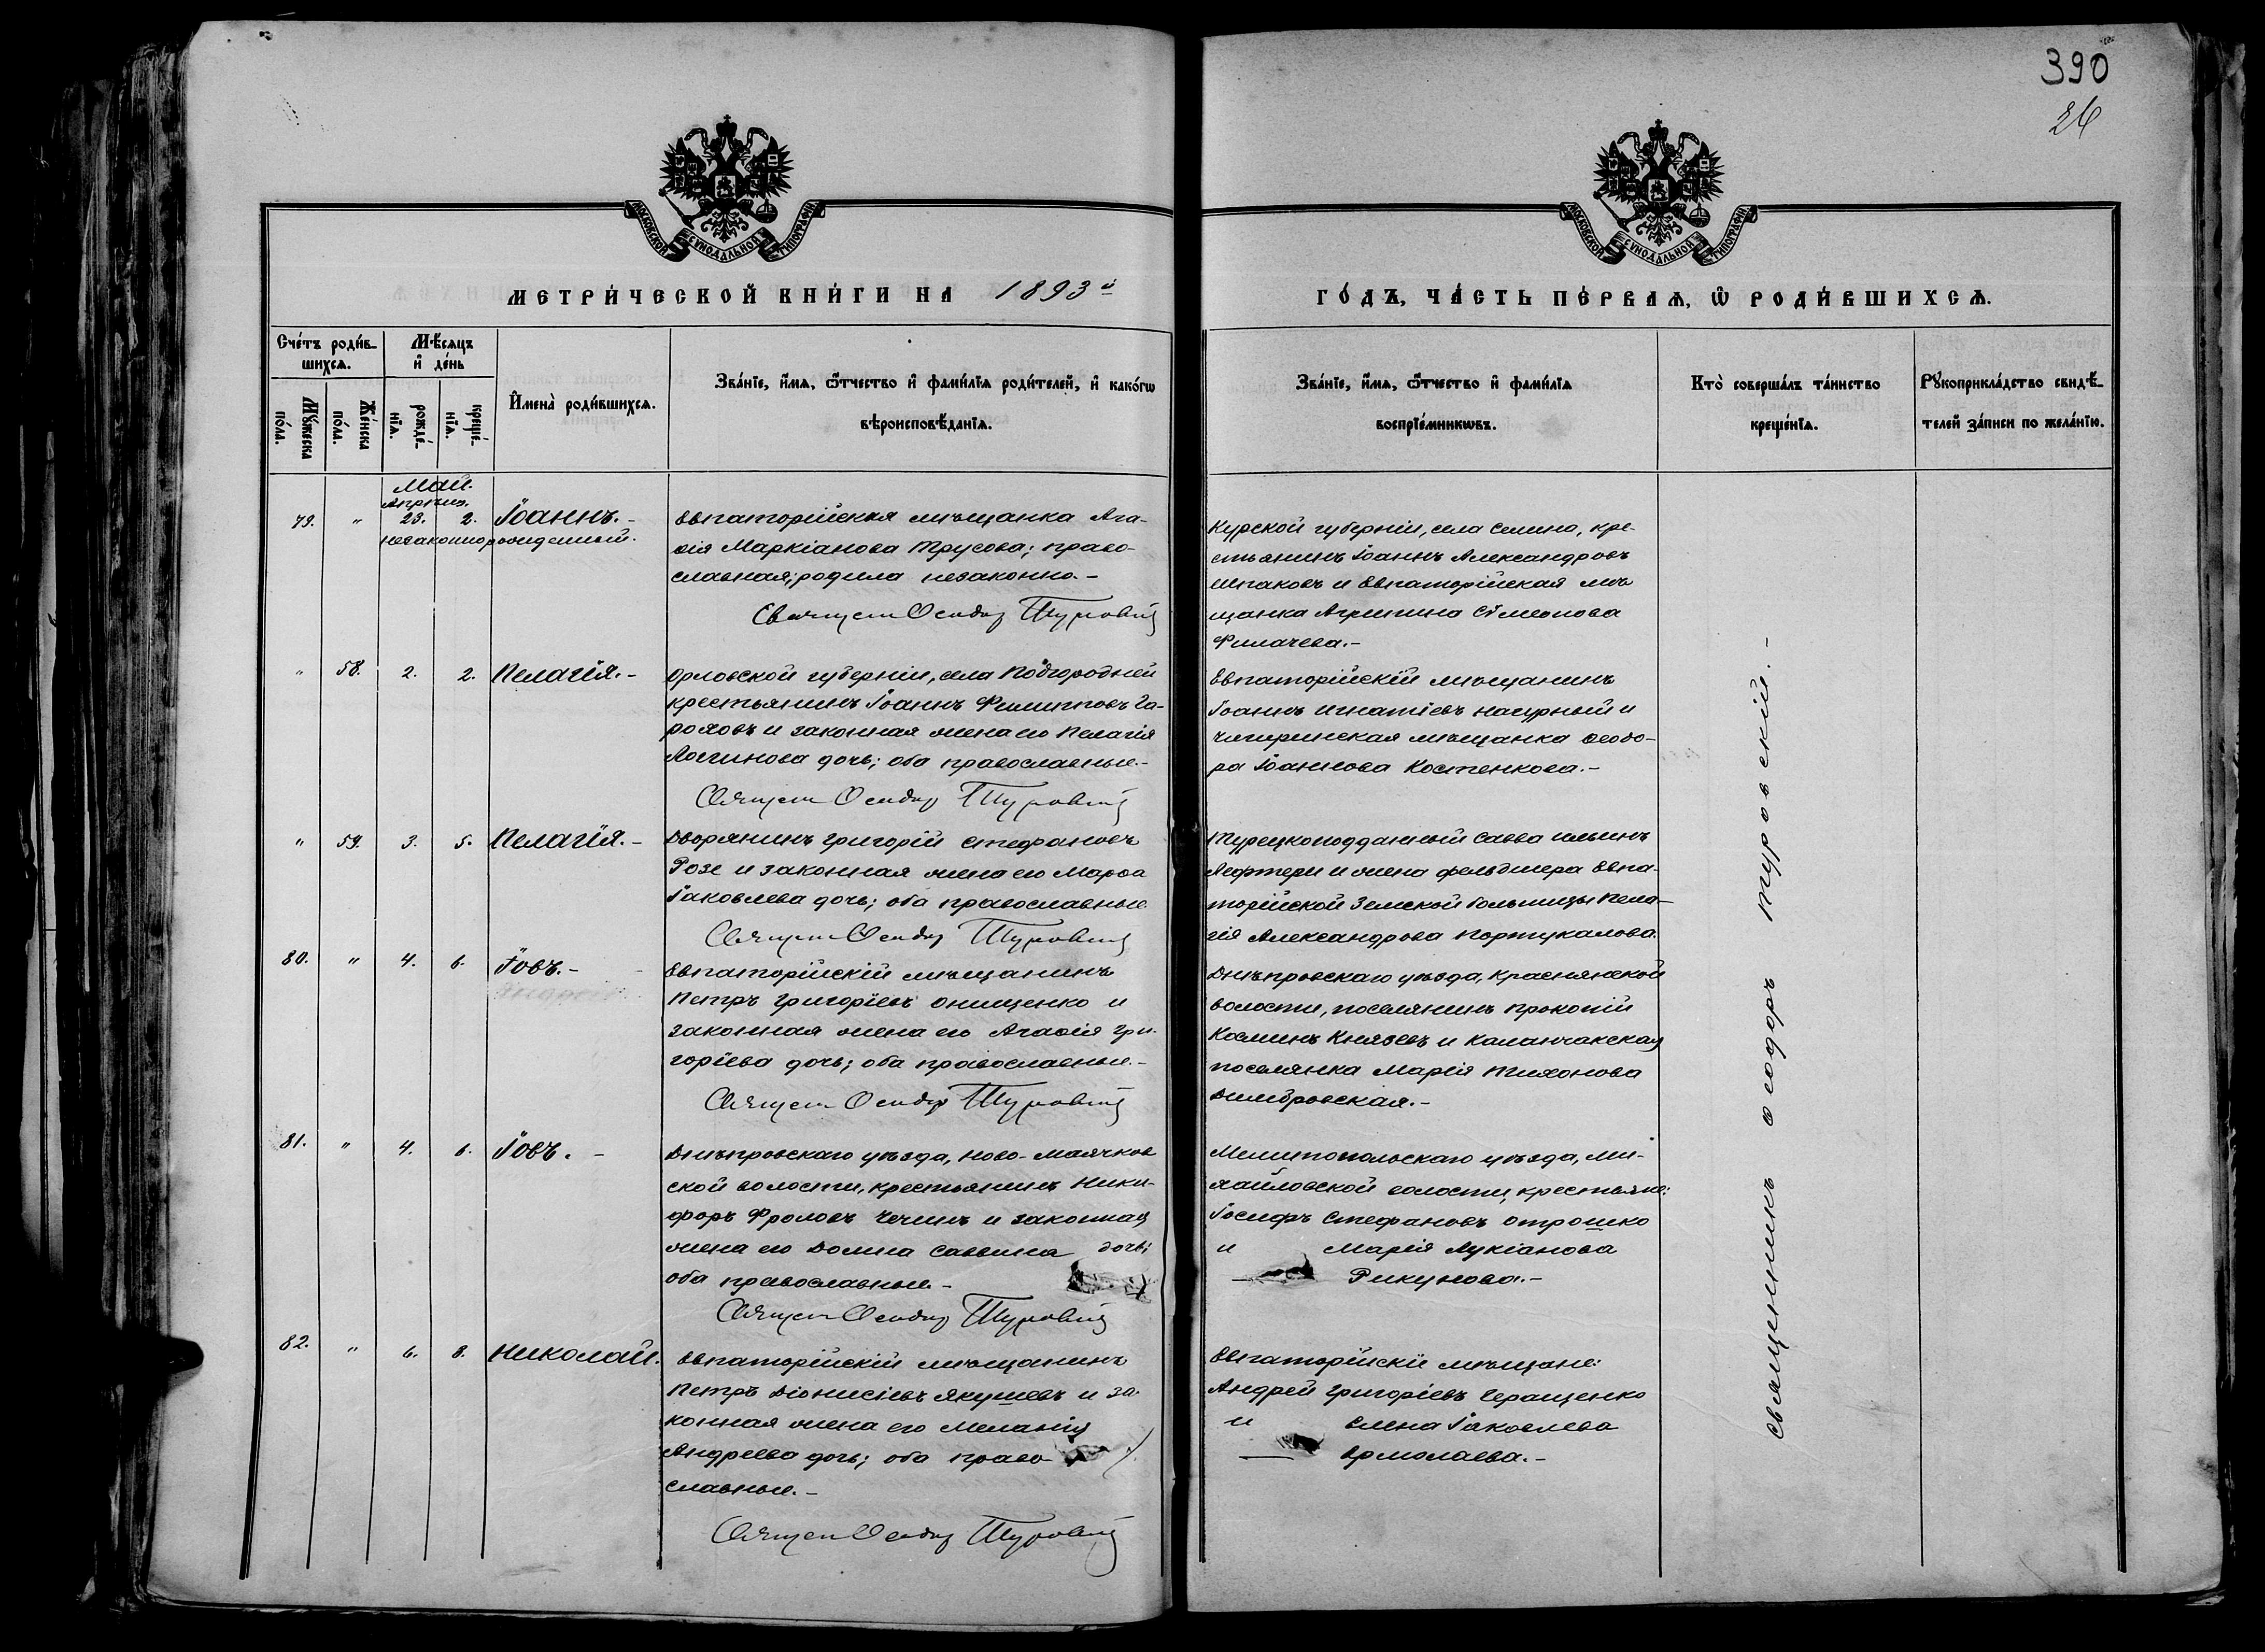 390
26
МОСКОВСКОЙ СѴНОДАЛЬНОЙ ТИПОГРАФІИ
МОСКОВСКОЙ СѴНОДАЛЬНОЙ ТИПОГРАФІИ
МЕТРИ́ЧЕСКОЙ КНИ́ГИ НА 1893й
ГО́ДЪ, ЧА́СТЬ ПЕ́РВАѦ, Ѿ РОДИ́ВШИХСѦ.
Сче́тъ роди́в-
шихсѧ.
Мꙋ́жеска по́ла.
Же́нска по́ла.
Мѣ́сѧцъ
и҆ де́нь
рожде́-нїѧ.
креще́-нїѧ.
И҆мена̀ роди́вшихсѧ.
Зва́нїе, и҆́мѧ, ѻ҆́тчество и҆ фами́лїѧ роди́телей, и҆ како́гѡ
вѣроисповѣ́данїѧ.
Зва́нїе, и҆́мѧ, ѻ҆́тчество и҆ фами́лїѧ
воспрїе́мникѡвъ.
Кто̀ соверша́лъ та́инство
креще́нїѧ.
Рꙋкоприкла́дство свидѣ́-
телей за́писи по жела́нїю.
Май.
Апрѣль.
79. " 23. 2. Іоаннъ.-
незаконнорожденный.
Евпаторійская мѣщанка Ага-
ѳія Маркіанова Трусова; право-
славная; родила незаконно.-
Священ Ѳеодор Туровскій
Курской губерніи, села Семино, кре-
стьянинъ Іоаннъ Александровъ
Шпаковъ и Евпаторійская мѣ
щанка Агрипина Симеонова
Филачева.-
" 58. 2. 2. Пелагія.-
Орловской губерніи, села Подгородней
крестьянинъ Іоаннъ Филипповъ Го-
роховъ и законная жена его Пелагія
Логинова дочь; оба православные.-
Священ Ѳеодор Туровскій
Евпаторійскій мѣщанинъ
Іоаннъ Игнатіевъ Нагурный и
Чигиринская мѣщанка Ѳеодо-
ра Іоаннова Костенкова.-
" 59. 3. 5. Пелагія.-
Дворянинъ Григорій Стефановъ
Розе и законная жена его Марѳа
Іаковлева дочь; оба православные
Священ Ѳеодор Туровскій
Турецкоподданный Савва Ильинъ
Лефтери и жена фельдшера Евпа-
торійской Земской больницы Пела-
гія Александрова Портукалова.
80. " 4. 6. Іовъ.-
Евпаторійскій мѣщанинъ
Петръ Григоріевъ Онищенко и
законная жена его Агаѳія Гри-
горіева дочь; оба православные.-
Священ Ѳеодор Туровскій
Днѣпровскаго уѣзда, Краснянской
волости, поселянинъ Прокопій
Косминъ Князевъ и Каланчакская
поселянка Марія Тихонова
Домбровская.-
81. " 4. 6. Іовъ.-
Днѣпровскаго уѣзда, Ново-Маячков
ской волости, крестьянинъ Ники-
форъ Фроловъ Чечинъ и законная
жена его Домна Саввина дочь;
оба православные.-
Священ Ѳеодор Туровскій
Мелитопольскаго уѣзда, Ми-
хайловской волости, крестьяне:
Іосифъ Стефановъ Отрошко
и Марія Лукіанова
Рикунова.-
82. " 6. 8. Николай.
Евпаторійскій мѣщанинъ
Петръ Діонисіевъ Якушевъ и за-
конная жена его Меланія
Андреева дочь; оба право-
славные.-
Священ Ѳеодор Туровскій
Евпаторійскіе мѣщане:
Андрей Григоріевъ Геращенко
и Елена Іаковлева
Ермолаева.-
Священникъ Ѳеодоръ Туровскій.-